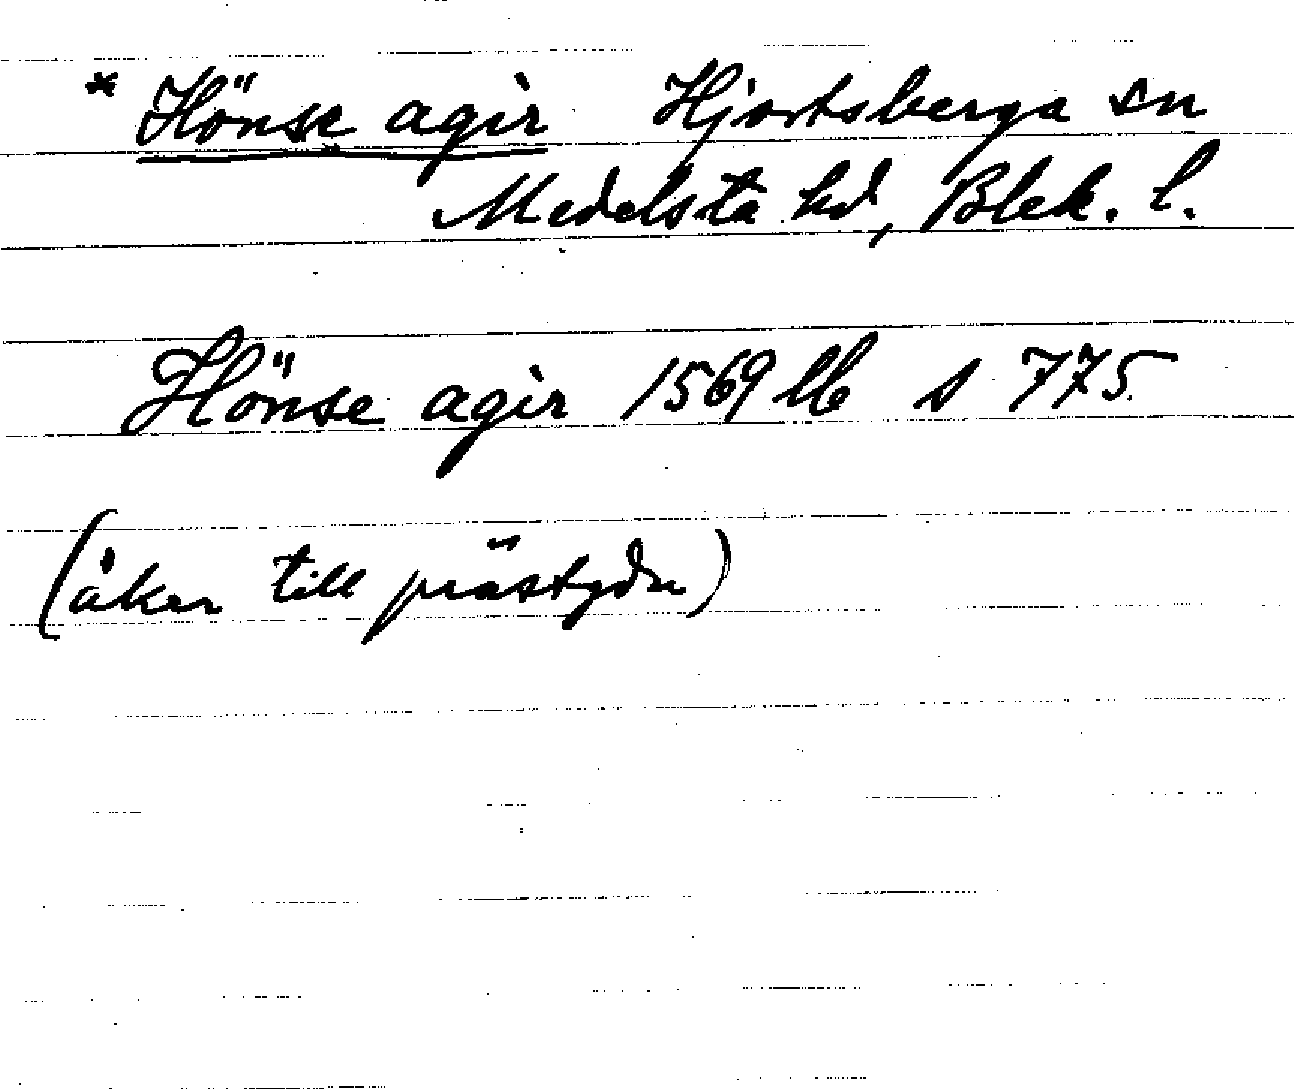 * Hönse agir Hjortsberga sn
Medelsta hd, Blek. l.
Hönse agir 1569 lb s 775
(åker till prästgdn)